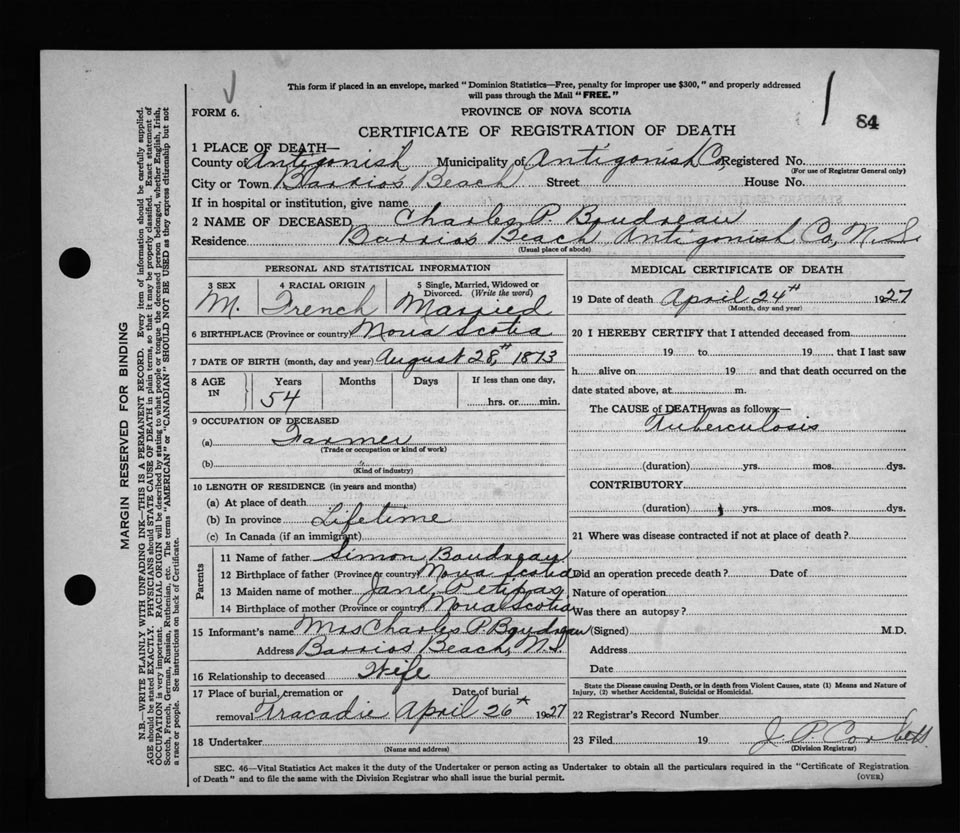 This form if placed in an envelope, marked "Dominion Statistics—Free, penalty for improper use $300," and properly addressed
will pass through the Mail "FREE."
84
FORM 6. PROVINCE OF NOVA SCOTIA
CERTIFICATE OF REGISTRATION OF DEATH
1 PLACE OF DEATH—
County of Antigonish Municipality of Antigonish Co, Registered No.
(For use of Registrar General only)
City or Town Barrios Beach Street House No.
If in hospital or institution, give name
2 NAME OF DECEASED Charles P. Boudreau
Residence Barrios Beach Antigonish Co, N.S.
(Usual place of abode)
PERSONAL AND STATISTICAL INFORMATION
3 SEX 4 RACIAL ORIGIN 5 Single, Married, Widowed or
Divorced. (Write the word)
M. French Married
6 BIRTHPLACE (Province or country) Nova Scotia
7 DATE OF BIRTH (month, day and year) August 28th, 1873
8 AGE IN Years Months Days If less than one day,
54 hrs. or min.
9 OCCUPATION OF DECEASED
(a) Farmer
(Trade or occupation or kind of work)
(b)
(Kind of industry)
10 LENGTH OF RESIDENCE (in years and months)
(a) At place of death
(b) In province Lifetime
(c) In Canada (if an immigrant)
Parents
11 Name of father Simon Boudreau
12 Birthplace of father (Province or country) Nova Scotia
13 Maiden name of mother Jane Petipas
14 Birthplace of mother (Province or country) Nova Scotia
15 Informant's name Mrs Charles P. Boudreau
Address Barrios Beach, N.S.
16 Relationship to deceased Wife
17 Place of burial, cremation or Date of burial
removal Tracadie April 26th 1927
18 Undertaker
(Name and address)
MEDICAL CERTIFICATE OF DEATH
19 Date of death April 24th 1927
(Month, day and year)
20 I HEREBY CERTIFY that I attended deceased from
19 to 19 that I last saw
h alive on 19 and that death occurred on the
date stated above, at m.
The CAUSE of DEATH was as follows:—
Tuberculosis
(duration) yrs. mos. dys.
CONTRIBUTORY
(duration) yrs. mos. dys.
21 Where was disease contracted if not at place of death?
Did an operation precede death? Date of
Nature of operation
Was there an autopsy?
(Signed) M.D.
Address
Date
State the Disease causing Death, or in death from Violent Causes, state (1) Means and Nature of
Injury, (2) whether Accidental, Suicidal or Homicidal.
22 Registrar's Record Number
23 Filed 19 J. P. Corbett
(Division Registrar)
SEC. 46—Vital Statistics Act makes it the duty of the Undertaker or person acting as Undertaker to obtain all the particulars required in the "Certificate of Registration
of Death" and to file the same with the Division Registrar who shall issue the burial permit.
(OVER)
MARGIN RESERVED FOR BINDING
N.B.—WRITE PLAINLY WITH UNFADING INK—THIS IS A PERMANENT RECORD. Every item of information should be carefully supplied.
AGE should be stated EXACTLY. PHYSICIANS should STATE CAUSE OF DEATH in plain terms, so that it may be properly classified. Exact statement of
OCCUPATION is very important. RACIAL ORIGIN will be described by stating to what people or tongue the deceased person belonged, whether English, Irish,
Scotch, French, German, Russian, Ruthenian, etc. The terms "AMERICAN" or "CANADIAN" SHOULD NOT BE USED as they express citizenship but not
a race or people. See instructions on back of Certificate.